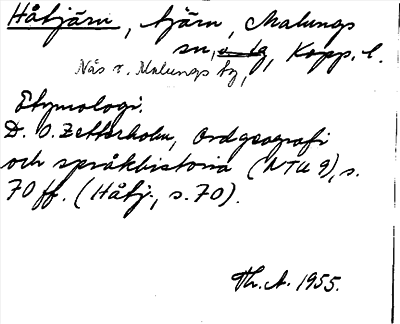 Håtjärn, tjärn, Malungs
sn, Kopp. l.
Nås o. Malungs tg,
Etymologi.
D. O. Zetterholm, Ordgeografi
och språkhistoria (NTU 9), s.
70 ff. (Håtj., s. 70).
Th. A. 1955.